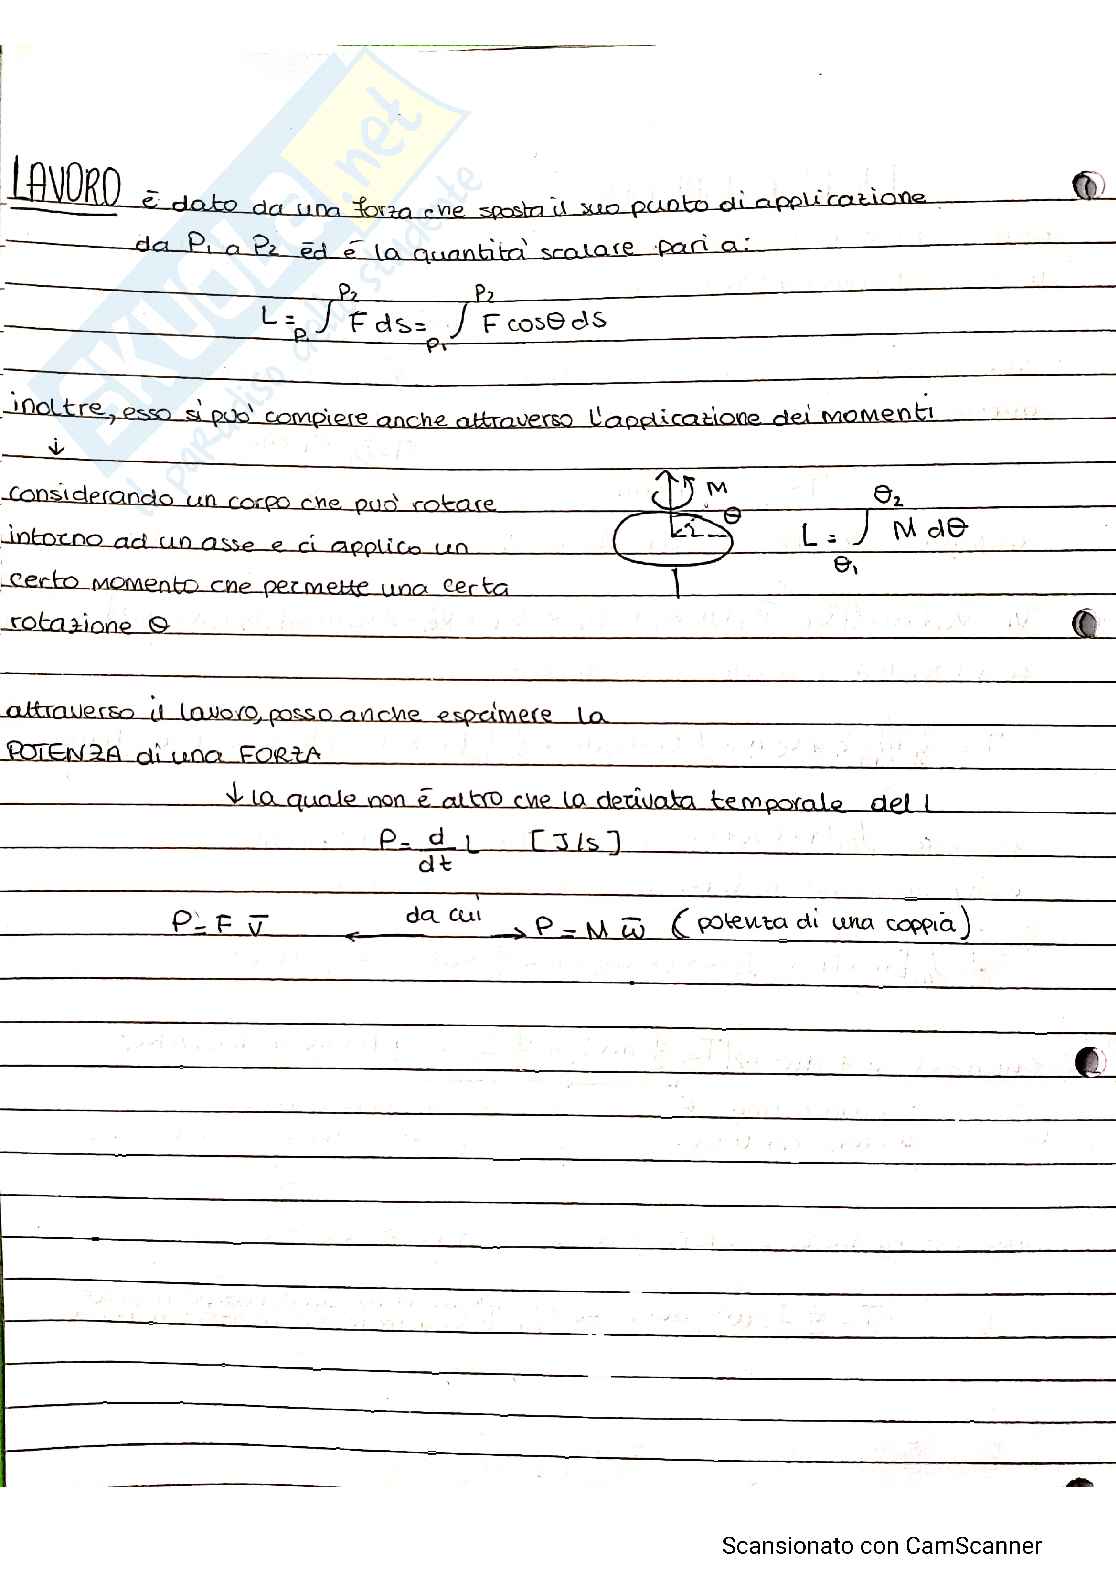 LAVORO è dato da una forza che sposta il suo punto di applicazione
da P₁ a P₂ ed è la quantità scalare pari a:
L = ₚ₁∫ᴾ² F ds = ₚ₁∫ᴾ² F cosθ ds
inoltre, esso si può compiere anche attraverso l'applicazione dei momenti
↓
considerando un corpo che può rotare
intorno ad un asse e ci applico un
certo momento che permette una certa
rotazione θ
M
θ
L = ∫ M dθ
θ₂
θ₁
attraverso il lavoro, posso anche esprimere la
POTENZA di una FORZA
↓ la quale non è altro che la derivata temporale del L
P = d/dt L [J/s]
P = F v̄ ← da cui → P = M ω̄ (potenza di una coppia)
SKUOLA.net
il paradiso dello studente
Scansionato con CamScanner